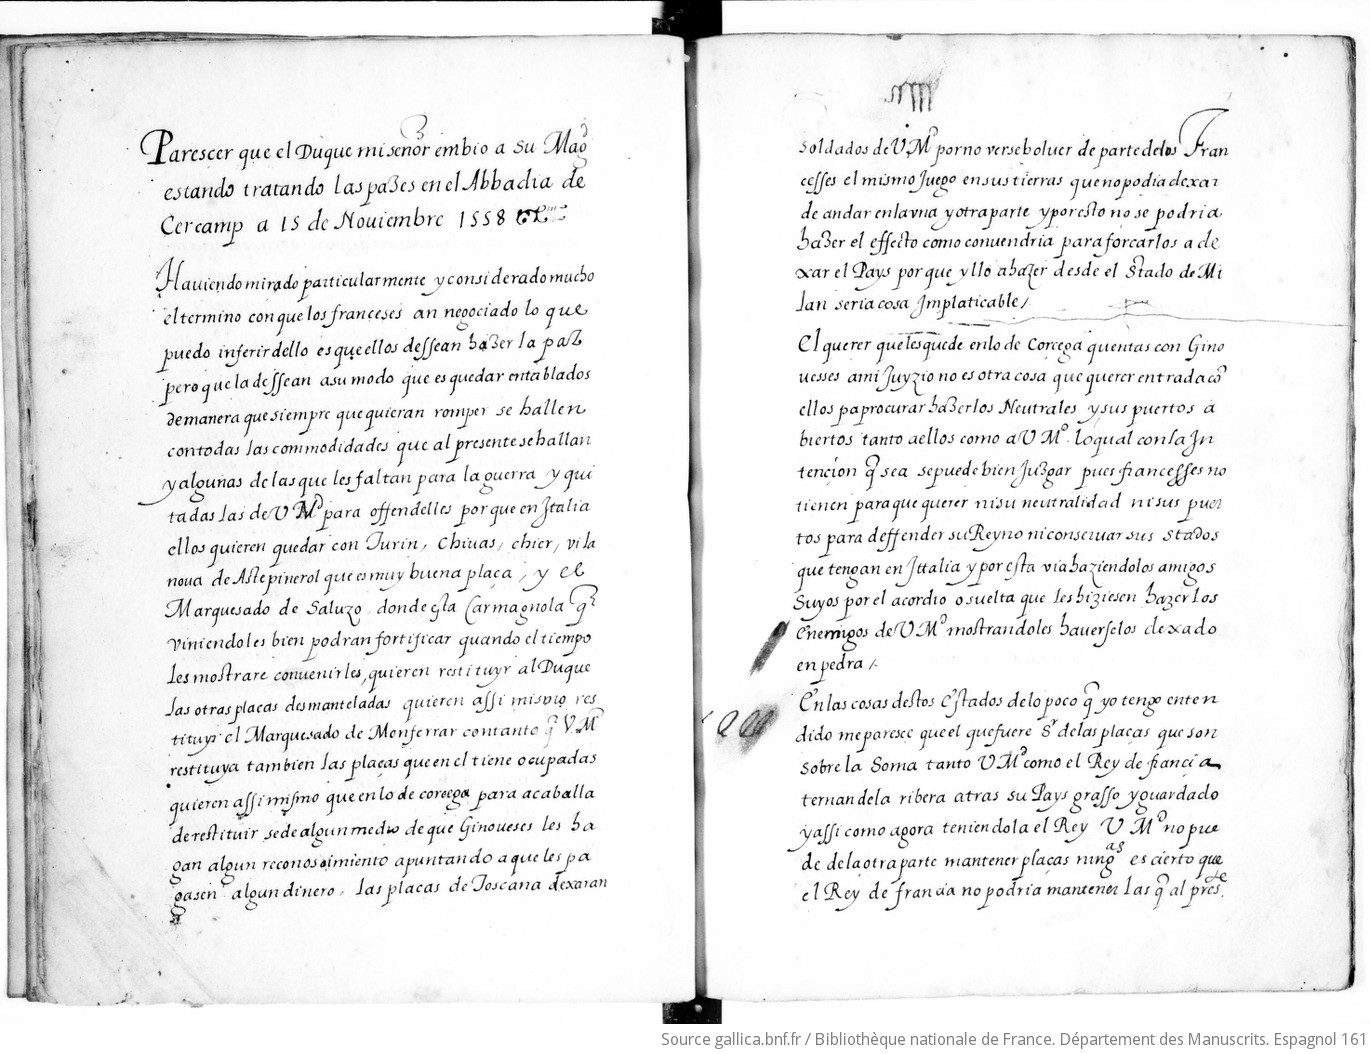 Parescer que el Duque mi señor embio a su Mag.d
estando tratando las pazes en el Abbadia de
Cercamp a 15 de Nouiembre 1558
Hauiendo mirado particularmente y considerado mucho
el termino con que los franceses an negociado lo que
puedo inferir dello es que ellos dessean hazer la paz
pero que la dessean a su modo que es quedar entablados
de manera que siempre que quieran romper se hallen
con todas las commodidades que al presente se hallan
y algunas de las que les faltan para la guerra y qui
tadas las de V M.d para offendelles por que en Italia
ellos quieren quedar con Turin, Chiuas, chier, vila
noua de Aste pinerol que es muy buena plaça, y el
Marquesado de Saluzo donde esta Carmagnola q̃
viniendoles bien podran fortificar quando el tiempo
les mostrare conuenirles, quieren restituyr al Duque
las otras placas desmanteladas quieren assi mismo res
tituyr el Marquesado de Monferrar con tanto q̃ V.M.d
restituya tambien las plaças que en el tiene ocupadas
quieren assi mismo que en lo de corcega para acaballa
de restituir se de algun medio de que Ginoueses les ha
gan algun reconoscimiento apuntando a que les pa
gasen algun dinero, las placas de Toscana dexaran
soldados de V.M.d por no verse boluer de parte de los Fran
cesses el mismo Juego en sus tierras que no podia dexar
de andar en la vna y otra parte y por esto no se podria
hazer el effecto como conuendria para forcarlos a de
xar el Pays por que yllo a hazer desde el Stado de Mi
lan seria cosa Implaticable /
El querer que les quede en lo de Corcega quentas con Gino
uesses a mi Juyzio no es otra cosa que querer entrada cõ
ellos pa procurar hazerlos Neutrales y sus puertos a
biertos tanto a ellos como a V M.d lo qual con la In
tençion q̃ sea se puede bien Juzgar pues francesses no
tienen para que querer ni su neutralidad ni sus puer
tos para deffender su Reyno ni conseruar sus stados
que tengan en Ittalia y por esta via haziendolos amigos
Suyos por el acordio o suelta que les hiziesen hazer los
Enemigos de V M.d mostrandoles hauerselos dexado
en pedra /
En las cosas destos Estados de lo poco q̃ yo tengo enten
dido me paresce que el que fuere S.r de las plaças que son
sobre la Soma tanto V M.d como el Rey de françia
ternan de la ribera atras su Pays grasso y guardado
y assi como agora teniendola el Rey V M.d no pue
de de la otra parte mantener plaças ning.as es cierto que
el Rey de francia no podria mantener las q̃ al pres.te